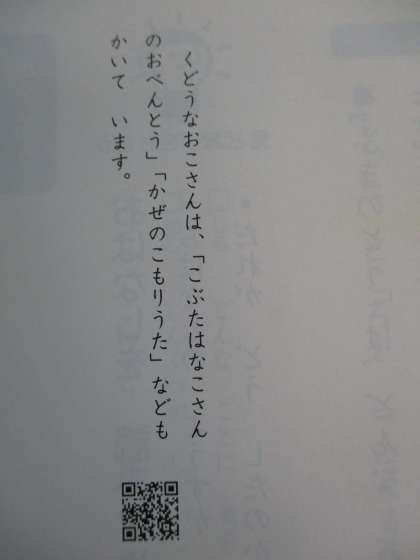 くどうなおこさんは、「こぶたはなこさん
のおべんとう」「かぜのこもりうた」なども
かいて います。